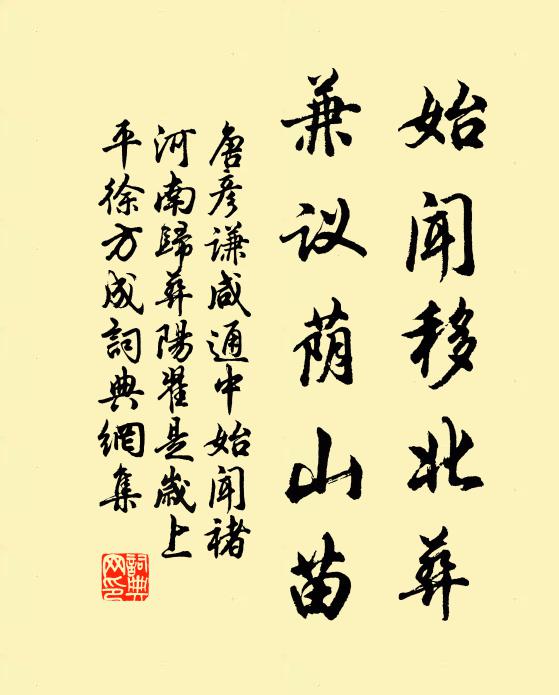 始闻移北葬
兼议荫山苗
唐彦謙咸通中始闻褚
河南歸葬陽翟是歲上
平徐方成詞典網集
詞典
网印